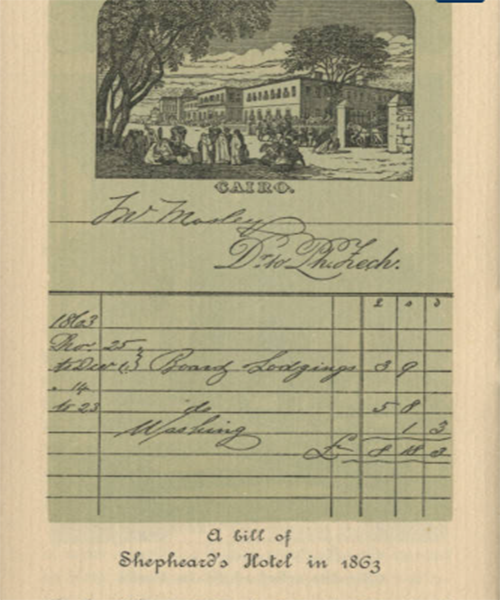 CAIRO.
Mr Mosley
Dr. to Ph. Zech.
£ s d
1863
Nov. 25
to Dec 13 } Board Lodgings 3 9
" 14
to 23 do 5 8
Washing 1 3
£ 8 18 3
A bill of
Shepheard's Hotel in 1863